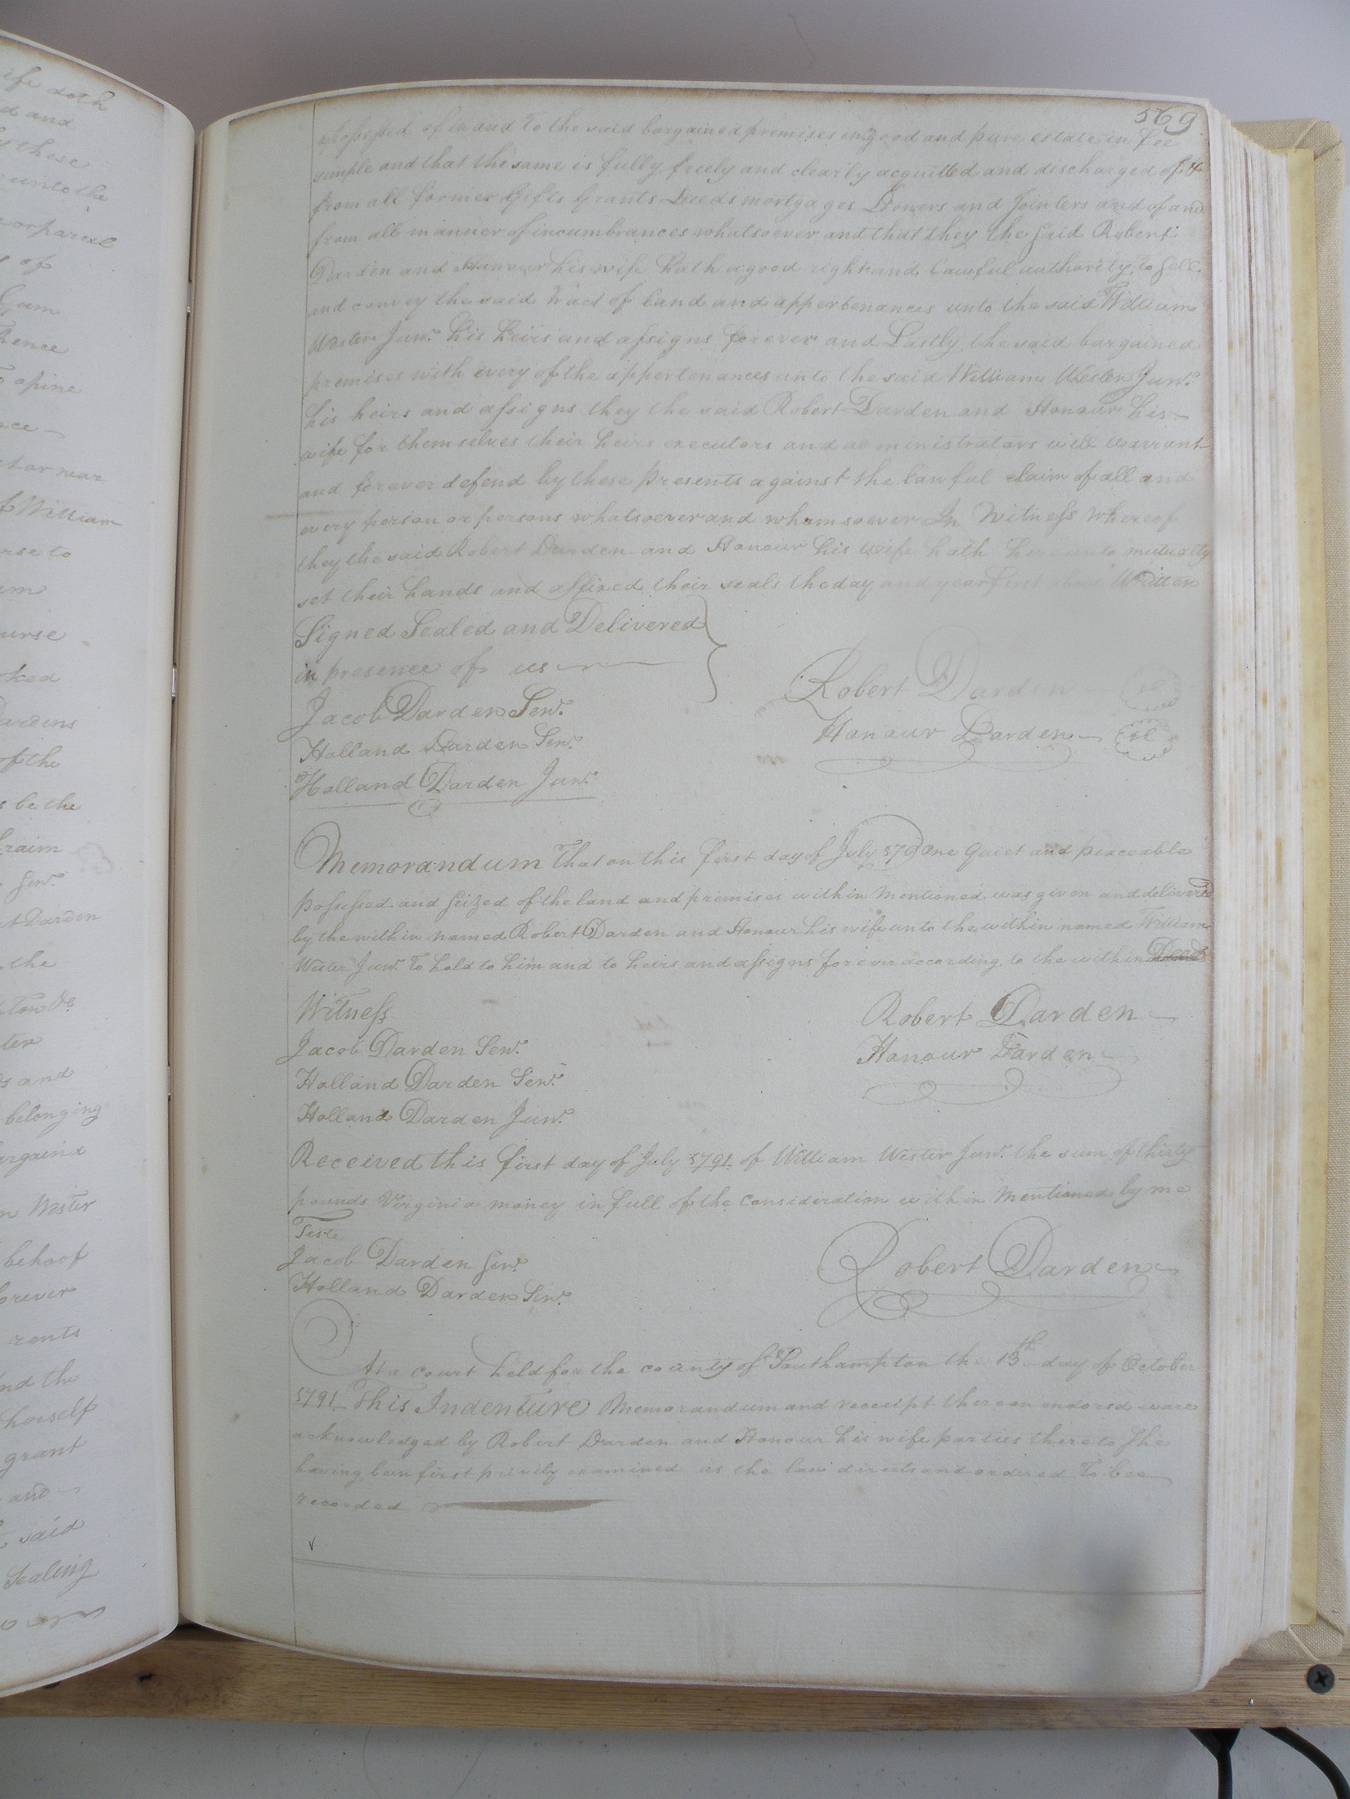 569
possessed of in and To the said bargained premises in good and pure estate in fee
simple and that the same is fully freely and clearly acquitted and discharged of &
from all former Gifts Grants Deeds mortgages Dowers and Jointers and of and
from all manner of incumbrances whatsoever and that they the said Robert
Darden and Honour his wife hath a good right and lawful authority to sell
and convey the said Tract of land and appertenances unto the said William
Wester Junr. his heirs and assigns forever and Lastly the said bargained
premises with every of the appertenances unto the said William Wester Junr.
his heirs and assigns they the said Robert Darden and Honour his
wife for themselves their heirs executors and administrators will warrant
and forever defend by these presents against the lawful claim of all and
every person or persons whatsoever and whomsoever In Witness whereof
they the said Robert Darden and Honour his wife hath hereunto mutually
set their hands and affixed their seals the day and year first above Written
Signed Sealed and Delivered
in presence of us
Jacob Darden Senr.
Holland Darden Senr.
Holland Darden Junr.
Robert Darden
Honour Darden
Memorandum That on this first day of July 1791 quiet and peaceable
possessed and seized of the land and premises within Mentioned was given and delivered
by the within named Robert Darden and Honour his wife unto the within named William
Wester Junr. To hold to him and to heirs and assigns forever according to the within Deed
Witness
Jacob Darden Senr.
Holland Darden Senr.
Holland Darden Junr.
Robert Darden
Honour Darden
Received this first day of July 1791 of William Wester Junr. the sum of thirty
pounds Virginia money in full of the consideration within Mentioned by me
Teste
Jacob Darden Senr.
Holland Darden Senr.
Robert Darden
At a court held for the county of Southampton the 13th day of October
1791 This Indenture Memorandum and receipt thereon endorsed ware
acknowledged by Robert Darden and Honour his wife parties thereto She
having been first privily examined as the law directs and ordered To bee
recorded